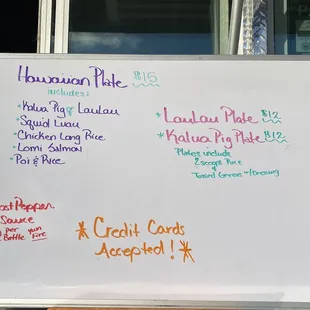 Hawaiian Plate $15
includes:
*Kalua Pig & Laulau
*Squid Luau
*Chicken Long Rice
*Lomi Salmon
*Poi & Rice
*Laulau Plate $12
*Kalua Pig Plate $12
Plates include
2 scoops Rice
&
Tossed Greens w/Dressing
Pepper
Sauce
per
Bottle yum
Fire
*Credit Cards
Accepted! *